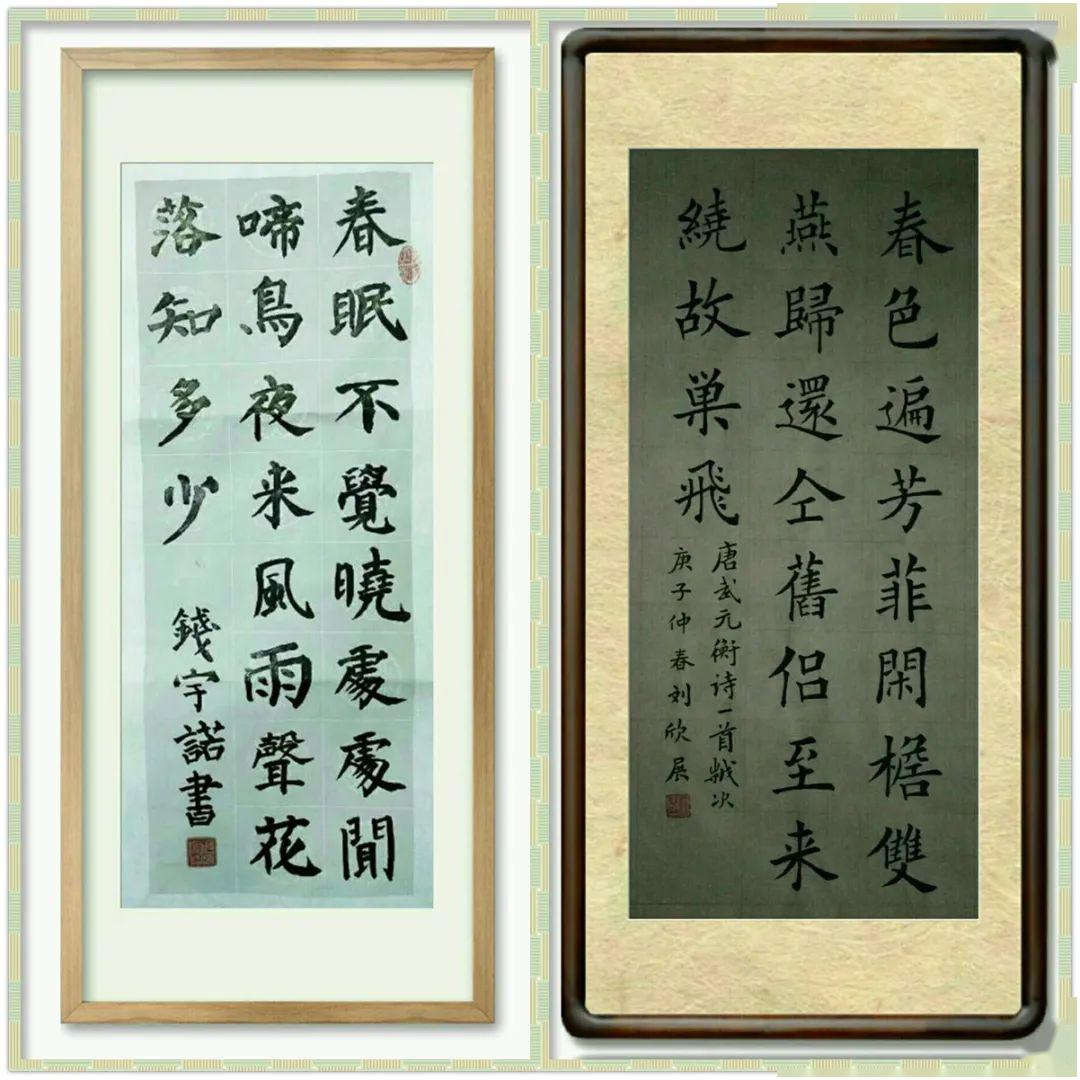 春眠不覺曉處處聞
啼鳥夜来風雨聲花
落知多少
錢宇諾書
春色遍芳菲閑檐雙
燕歸還仝舊侣至来
繞故巢飛
唐武元衡诗一首
庚子仲春刘欣展